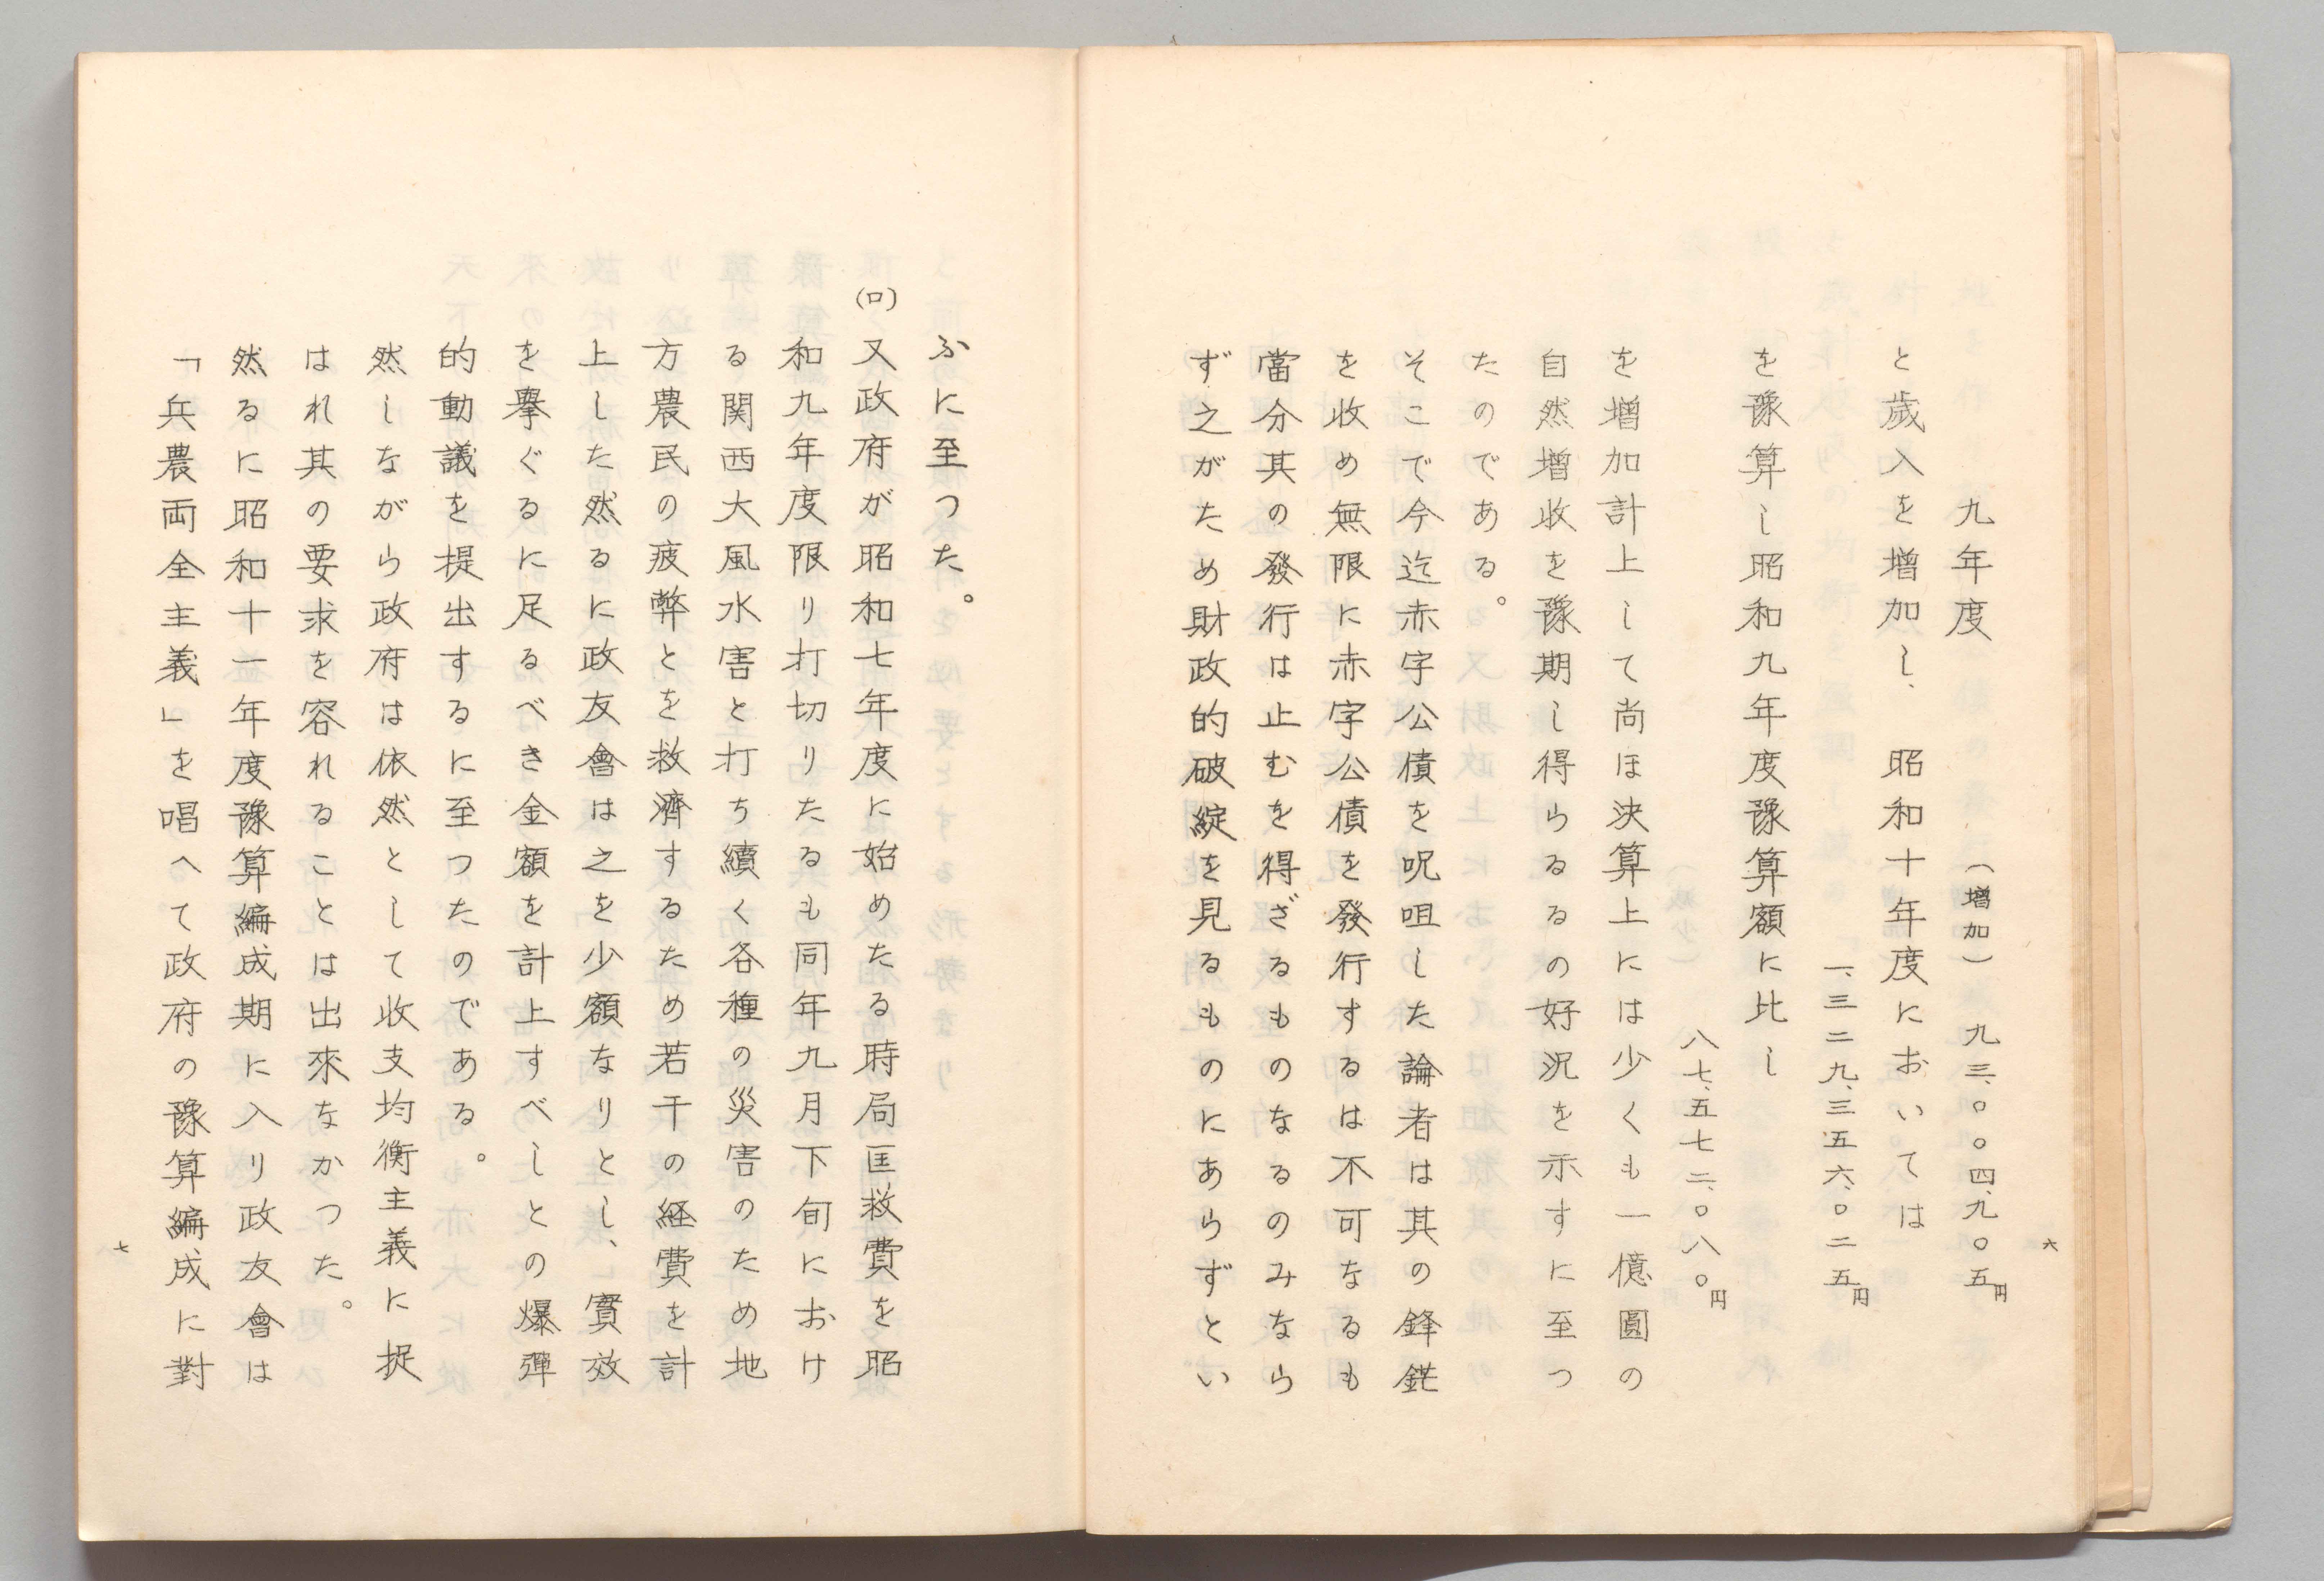 六
九年度　(増加)　九三、〇〇四、九〇五円
と歳入を増加し、昭和十年度においては
一、三二九、三五六、〇二五円
を豫算し昭和九年度豫算額に比し
八七、五七二、〇八〇円
を増加計上して尚ほ決算上には少くも一億圓の
自然増收を豫期し得らるるの好況を示すに至つ
たのである。
そこで今迄赤字公債を呪咀した論者は其の鋒鋩
を收め無限に赤字公債を發行するは不可なるも
當分其の發行は止むを得ざるものなるのみなら
ず之がため財政的破綻を見るものにあらずとい
ふに至つた。
(ロ)又政府が昭和七年度に始めたる時局匡救費を昭
和九年度限り打切りたるも同年九月下旬におけ
る関西大風水害と打ち續く各種の災害のため地
方農民の疲弊とを救濟するため若干の経費を計
上した然るに政友會は之を少額なりとし、實效
を擧ぐるに足るべき金額を計上すべしとの爆彈
的動議を提出するに至つたのである。
然しながら政府は依然として收支均衡主義に捉
はれ其の要求を容れることは出來なかつた。
然るに昭和十一年度豫算編成期に入り政友會は
「兵農両全主義」を唱へて政府の豫算編成に對
七